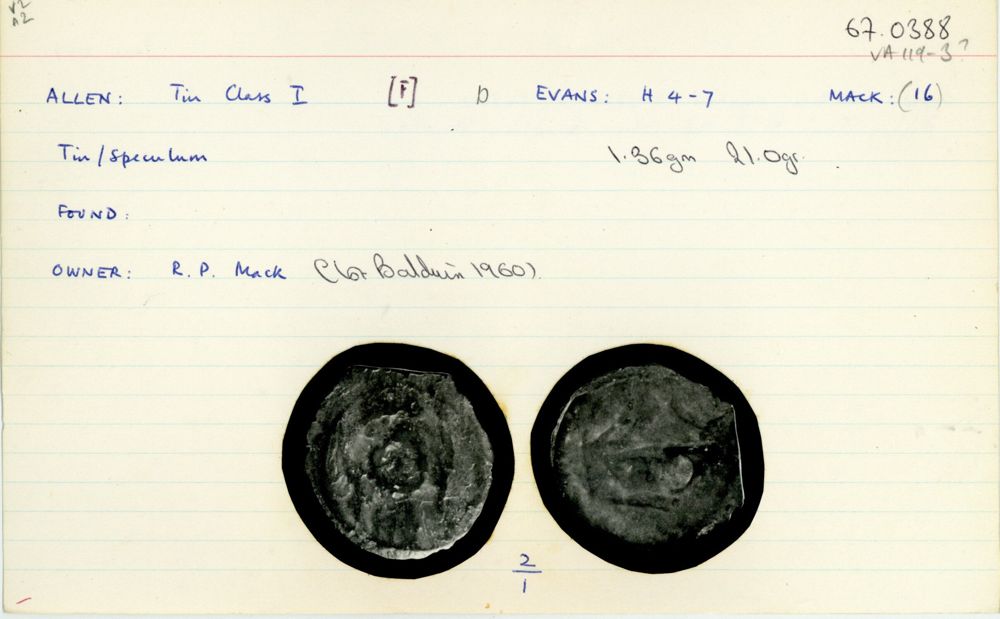 V2
A2
67.0388
VA 119-3?
ALLEN: Tin Class I [F] D EVANS: H 4-7 MACK: (16)
Tin/Speculum 1.36gm 21.0gr.
FOUND:
OWNER: R. P. Mack (for Baldwin 1960).
2
1